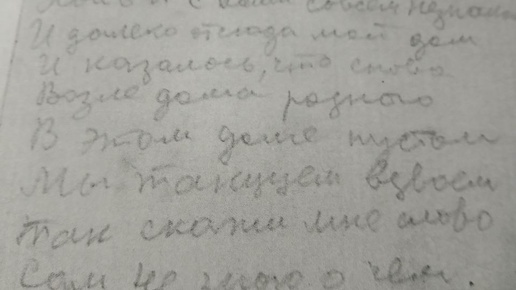 Хоть я с вами совсем незнаком
И далеко отсюда мой дом
И казалось, что снова
Возле дома родного
В этом доме пустом
Мы танцуем вдвоем
Так скажи мне слово
Сам не знаю о чем.